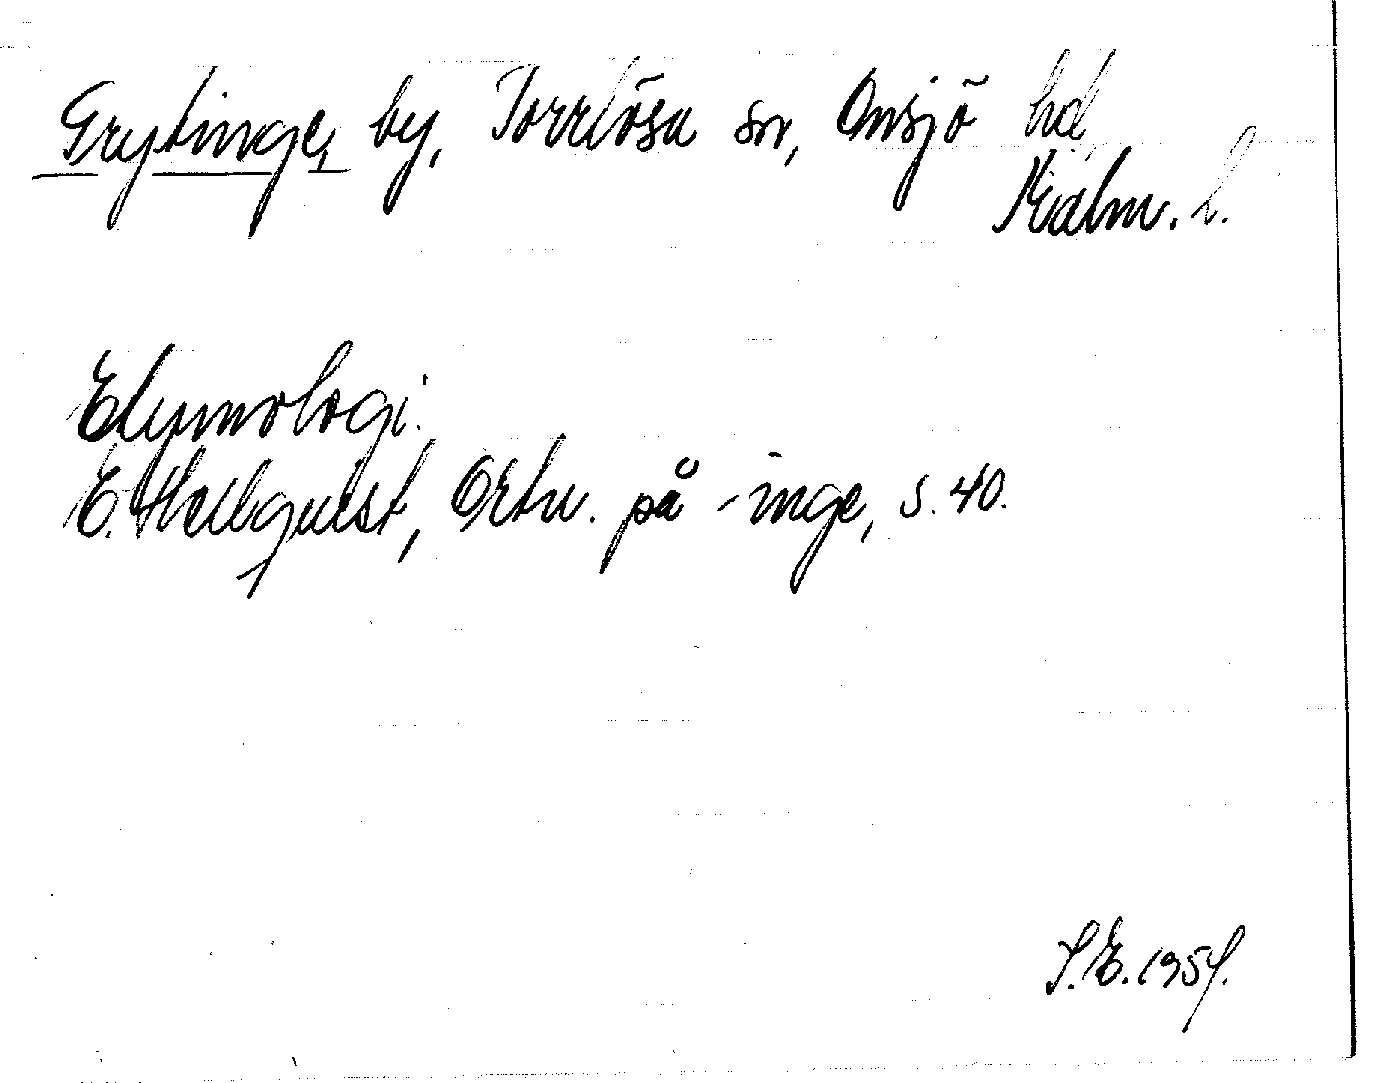 Grytinge, by, Torrlösa sn, Onsjö hd,
Malm. l.
Etymologi:
E. Hellquist, Ortn. på -inge, s. 40.
S.E. 1954.